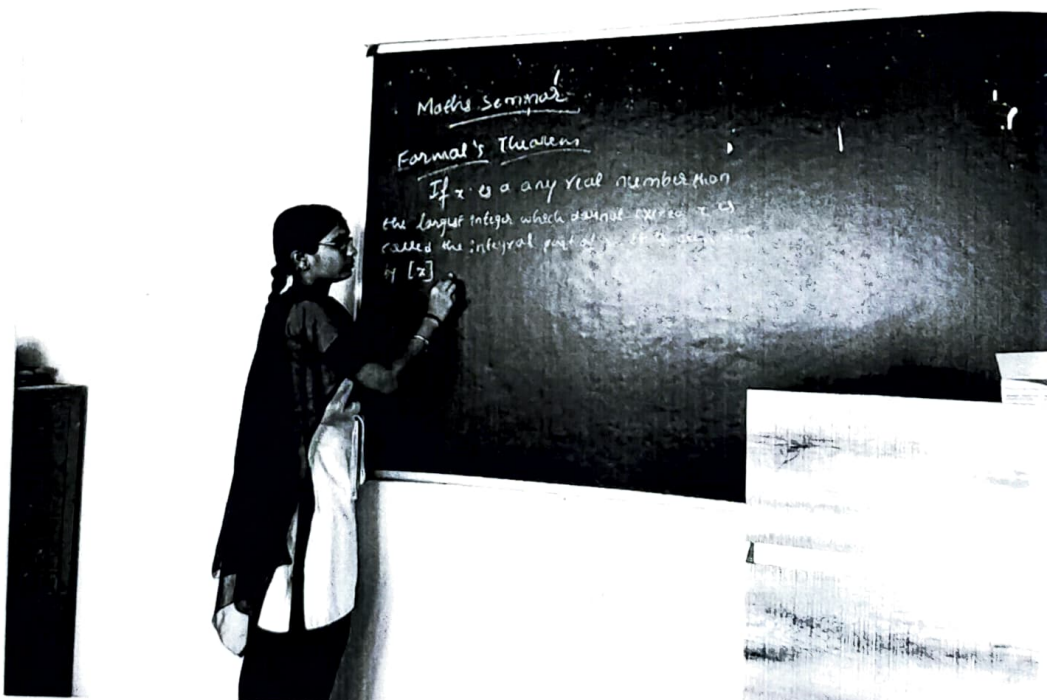 Maths Seminar
Farmal's Theorem
If x is a any real number than
the largest integer which dannot exceed x is
called the integral part of x. It is
by [x]